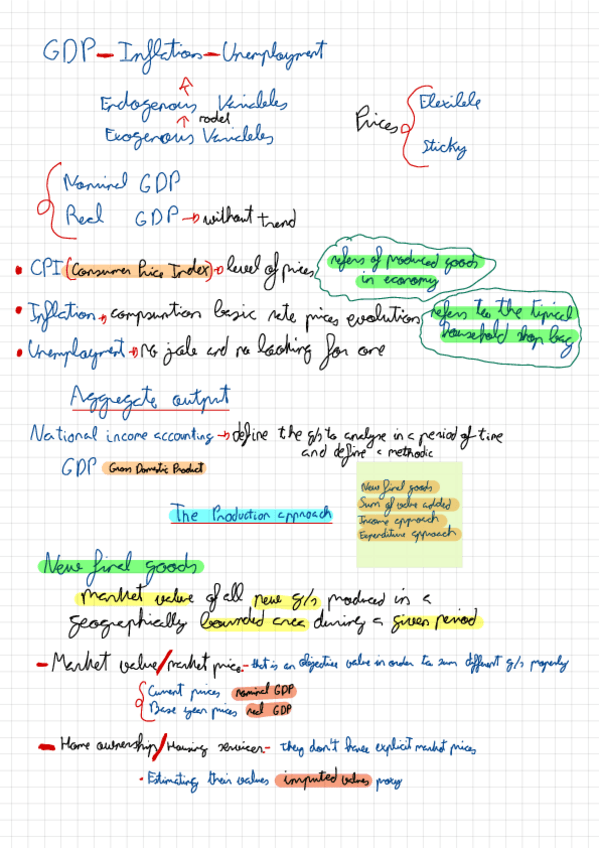 GDP - Inflation - Unemployment
Endogenous Variables
model
Exogenous Variables
Prices
Flexible
Sticky
Nominal GDP
Real GDP → without trend
• CPI (Consumer Price Index) → level of prices
refers of produced goods
in economy
• Inflation → compsuntion basic rate prices evolution
refers to the tipical
household shop bag
• Unemployment → no jobe and no looking for one
Aggregate output
National income accounting → define the g/s to analyse in a period of time
and define a methodic
GDP Gross Domestic Product
New final goods
Sum of value added
Income approach
Expenditure approach
The Production approach
New final goods
market value of all new g/s produced in a
geographically bounded area during a given period
- Market value/market price - that is an objective value in order to sum different g/s properly
Current prices nominal GDP
Base year prices real GDP
- Home ownership/Housing services - they don't have explicit market prices
• Estimating their values imputed values proxy